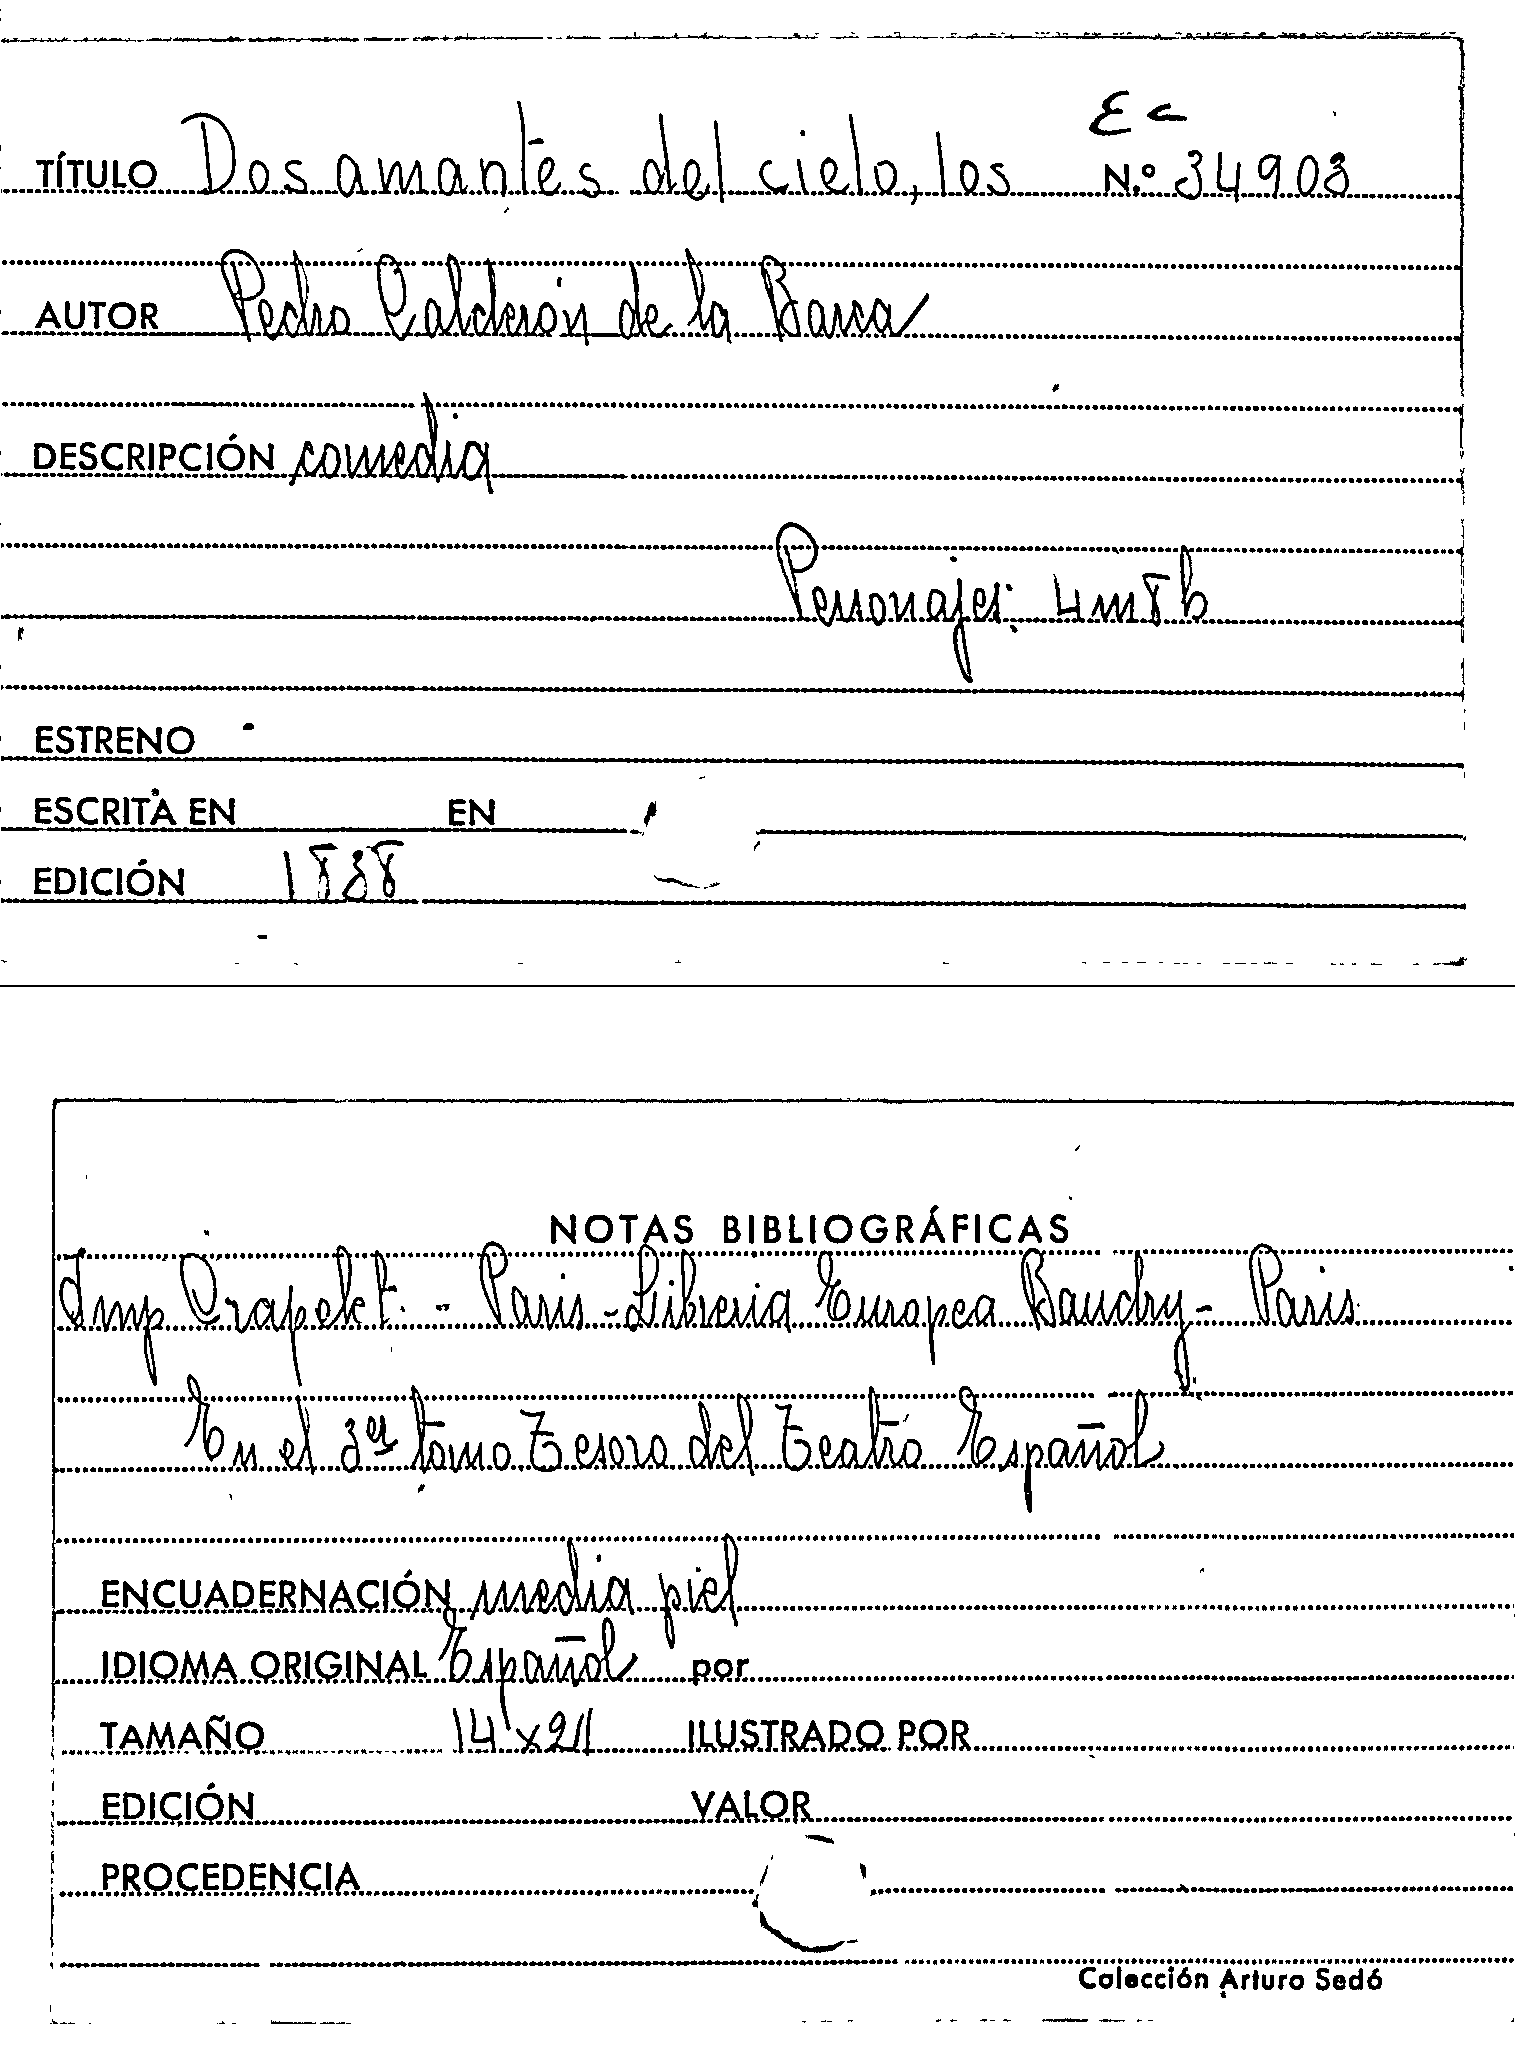 Ec
TÍTULO Dos amantes del cielo, los N.º 34903
AUTOR Pedro Calderón de la Barca
DESCRIPCIÓN comedia
Personajes: 4m 8h
ESTRENO
ESCRITA EN EN
EDICIÓN 1838
NOTAS BIBLIOGRÁFICAS
Imp Crapelet. - Paris - Libreria Europea Baudry - Paris
En el 3er tomo Tesoro del Teatro Español
ENCUADERNACIÓN media piel
IDIOMA ORIGINAL Español por
TAMAÑO 14 x 21 ILUSTRADO POR
EDICIÓN VALOR
PROCEDENCIA
Colección Arturo Sedó